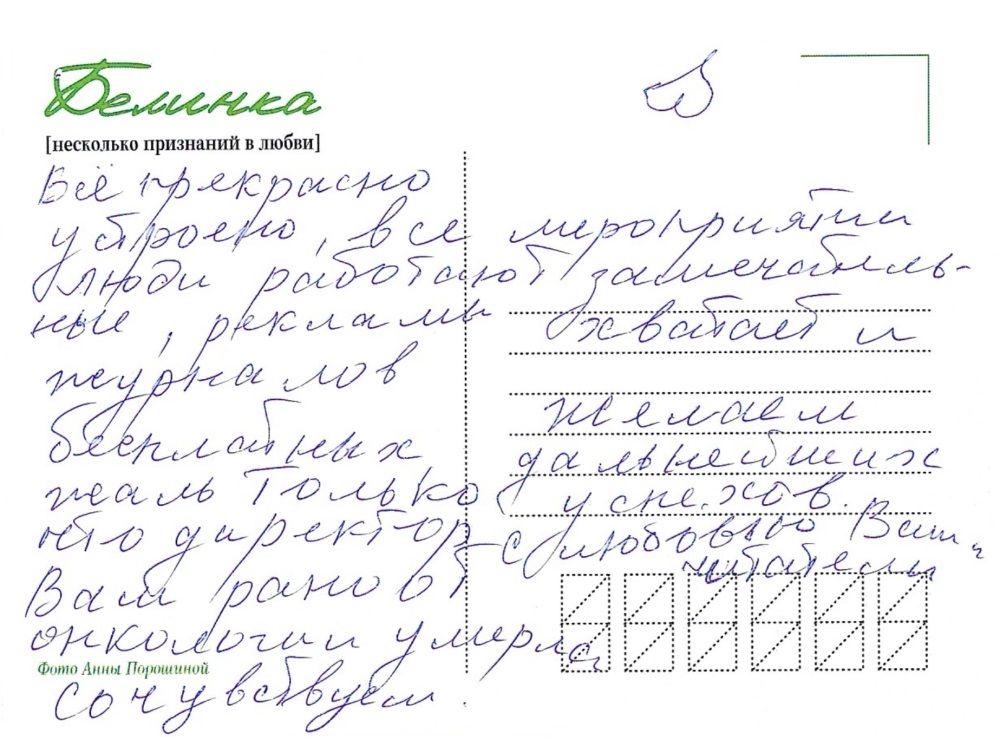 Белинка
[несколько признаний в любви]
Всё прекрасно
устроено, все мероприятии
люди работают замечатель-
ные, рекламы хватает и
журналов
бесплатных
жаль только
что директор
Вам рано от
онкологии умерла
Сочувствуем.
желаем
дальнейших
успехов.
С любовью Ваши
читатели
Фото Анны Порошиной